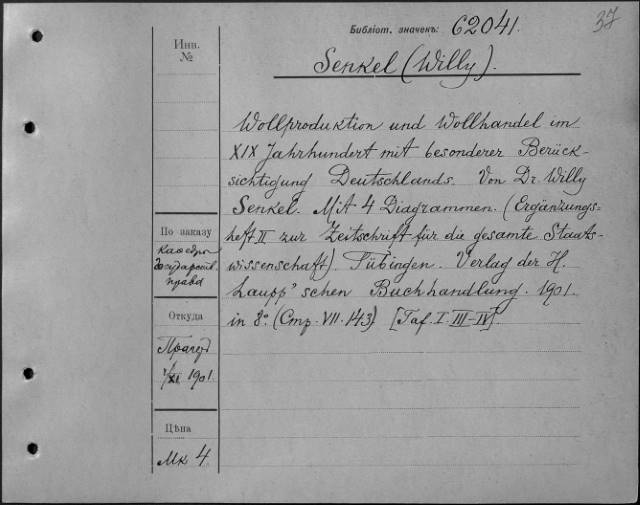 37
Библіот. значекъ: 62041.
Инв.
№
Senkel (Willy).
Wollproduktion und Wollhandel im
XIX Jahrhundert mit besonderer Berück-
sichtigung Deutschlands. Von Dr. Willy
Senkel. Mit 4 Diagrammen. (Ergänzungs-
heft II zur Zeitschrift für die gesamte Staats-
wissenschaft). Tübingen. Verlag der H.
Laupp'schen Buchhandlung. 1901.
in 8º. (Стр. VII. 143) [Taf. I. III-IV].
По заказу
кафедры
Государств.
права
Откуда
1901.
Цѣна
Мк 4.